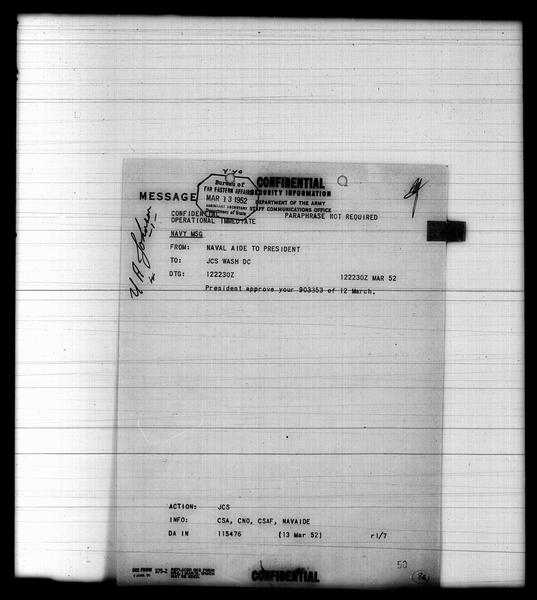 CONFIDENTIAL
SECURITY INFORMATION
Bureau of
FAR EASTERN AFFAIRS
MAR 13 1952
ASSISTANT SECRETARY
Department of State
MESSAGE
DEPARTMENT OF THE ARMY
STAFF COMMUNICATIONS OFFICE
CONFIDENTIAL PARAPHRASE NOT REQUIRED
OPERATIONAL IMMEDIATE
NAVY MSG
FROM: NAVAL AIDE TO PRESIDENT
TO: JCS WASH DC
DTG: 122230Z 122230Z MAR 52
President approve your 903353 of 12 March.
U A Johnson
ACTION: JCS
INFO: CSA, CNO, CSAF, NAVAIDE
DA IN 115476 (13 Mar 52) r1/7
50
OCS FORM 375-2 REPLACES OCS FORM
375-2, 1 MAR 51, WHICH
MAY BE USED.
CONFIDENTIAL